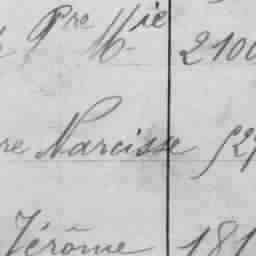 Pre Mie 2100
re Narcisse 527
Jérôme 181